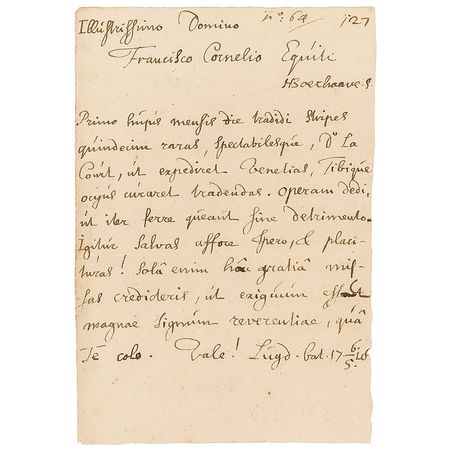 Illustrissimo Domino nº. 64 127
Francisco Cornelio Equiti
HBoerhaave. s.
Primo hujus mensis die tradidi stirpes
quindecim raras, spectabilesque, Dº La
Court, ut expediret Venetias, Tibique
ocyus curaret tradendas. operam dedi,
ut iter ferre queant sine detrimento.
Igitur salvas affore spero, & placi-
turas! Solâ enim hâc gratiâ mis-
sas credideris, ut exiguum essent
magnae signum reverentiae, quâ
Te colo. Vale! Lugd. bat. 17